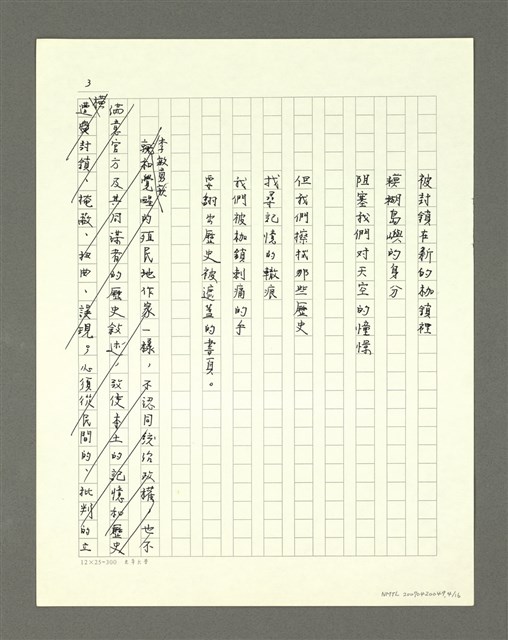 3
被封鎖在新的枷鎖裡
模糊島嶼的身分
阻塞我們對天空的憧憬
但我們擦拭那些歷史
找尋記憶的轍痕
我們被枷鎖刺痛的手
要翻出歷史被遮蓋的書頁。
李敏勇
就和覺醒的殖民地作家一樣,不認同統治政權,也不
滿意官方及共同謀者的歷史敘述,致使本土的記憶和歷史
遭受封鎖、掩蔽、扭曲、誤現,必須從民間的、批判的立
12×25=300
NMTL 20090420049, 4/16